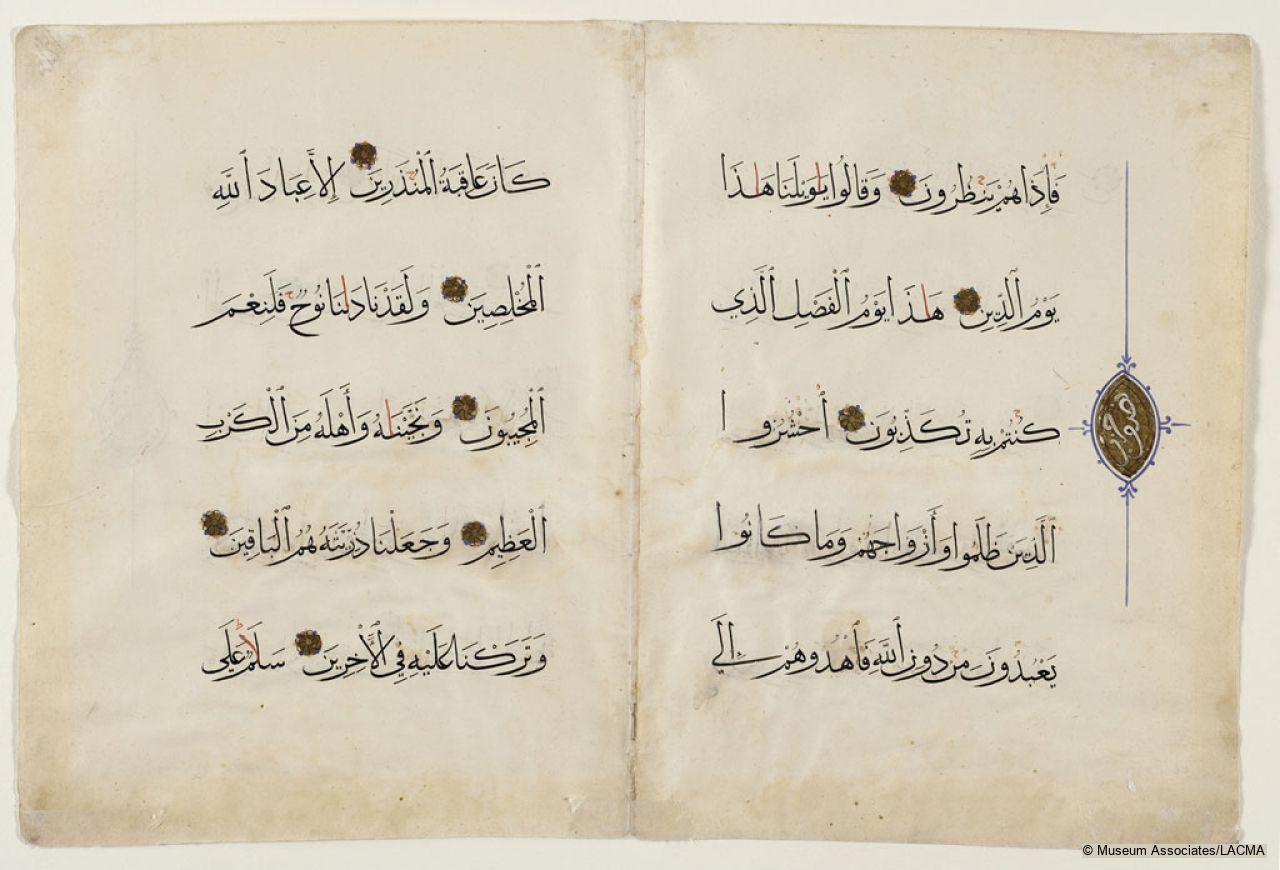 فَإِذَا هُمْ يَنظُرُونَ وَقَالُوا يَاوَيْلَنَا هَاذَا
يَوْمُ الدِّينِ هَاذَا يَوْمُ الْفَصْلِ الَّذِي
كُنتُمْ بِهِ تُكَذِّبُونَ احْشُرُوا
الَّذِينَ ظَلَمُوا وَأَزْوَاجَهُمْ وَمَا كَانُوا
يَعْبُدُونَ مِن دُونِ اللَّهِ فَاهْدُوهُمْ إِلَي
كَانَ عَاقِبَةُ الْمُنذَرِينَ إِلَّا عِبَادَ اللَّهِ
الْمُخْلَصِينَ وَلَقَدْ نَادَانَا نُوحٌ فَلَنِعْمَ
الْمُجِيبُونَ وَنَجَّيْنَاهُ وَأَهْلَهُ مِنَ الْكَرْبِ
الْعَظِيمِ وَجَعَلْنَا ذُرِّيَّتَهُ هُمُ الْبَاقِينَ
وَتَرَكْنَا عَلَيْهِ فِي الْآخِرِينَ سَلَامٌ عَلَى
© Museum Associates/LACMA